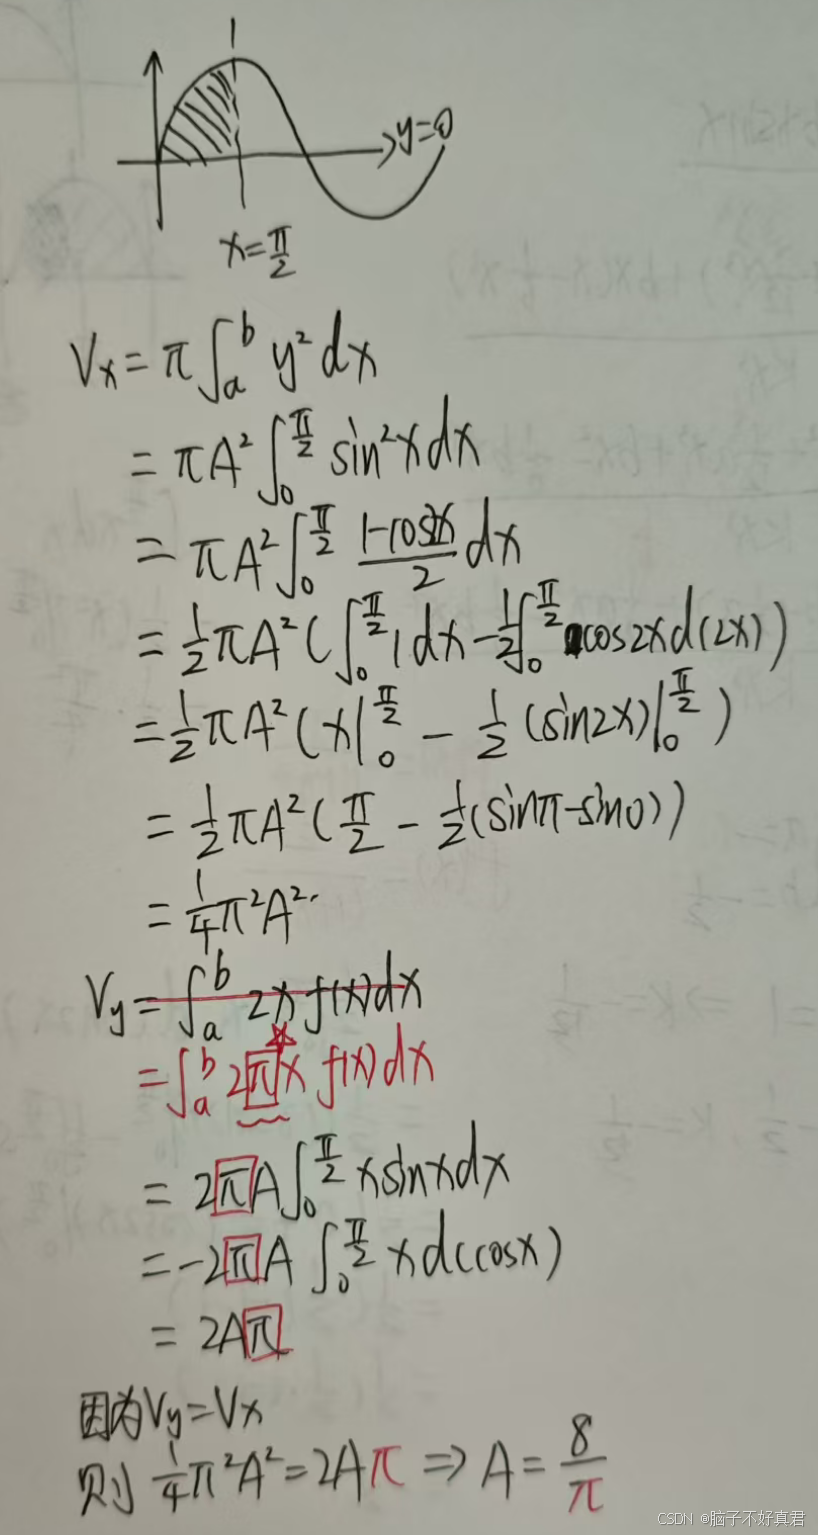 1
y=0
x=π/2
Vx=π∫_a^b y²dx
=πA²∫_0^{π/2} sin²xdx
=πA²∫_0^{π/2} (1-cos2x)/2 dx
=1/2πA²(∫_0^{π/2} 1dx-1/2∫_0^{π/2} cos2xd(2x))
=1/2πA²(x|_0^{π/2} - 1/2(sin2x)|_0^{π/2})
=1/2πA²(π/2 - 1/2(sinπ-sin0))
=1/4π²A².
Vy=∫_a^b 2xf(x)dx
=∫_a^b 2πx f(x)dx
=2πA∫_0^{π/2} xsinxdx
=-2πA∫_0^{π/2} xd(cosx)
=2Aπ
因为Vy=Vx
则 1/4π²A²=2Aπ ⇒ A=8/π
CSDN @脑子不好真君